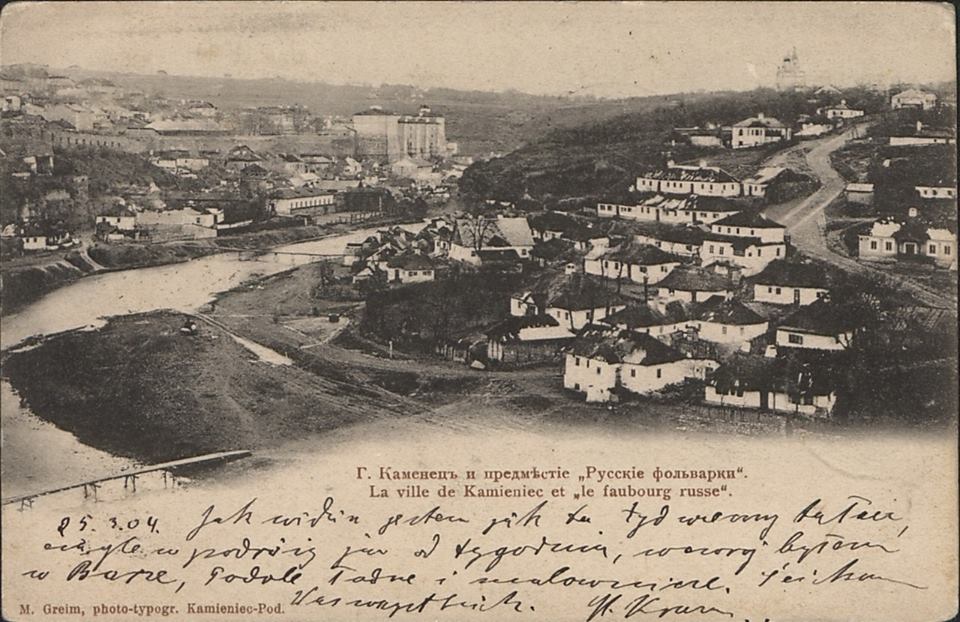 Г. Каменецъ и предмѣстіе „Русскіе фольварки“.
La ville de Kamieniec et „le faubourg russe“.
25.3.04. Jak widzin jestem jak ten Żyd wieczny tułacz,
ciągle w podróży już od tygodnia, wczoraj byłem
w Barze, Podole ładne i malownicze. Ściskam
Was wszystkich.
M. Greim, photo-typogr. Kamieniec-Pod.